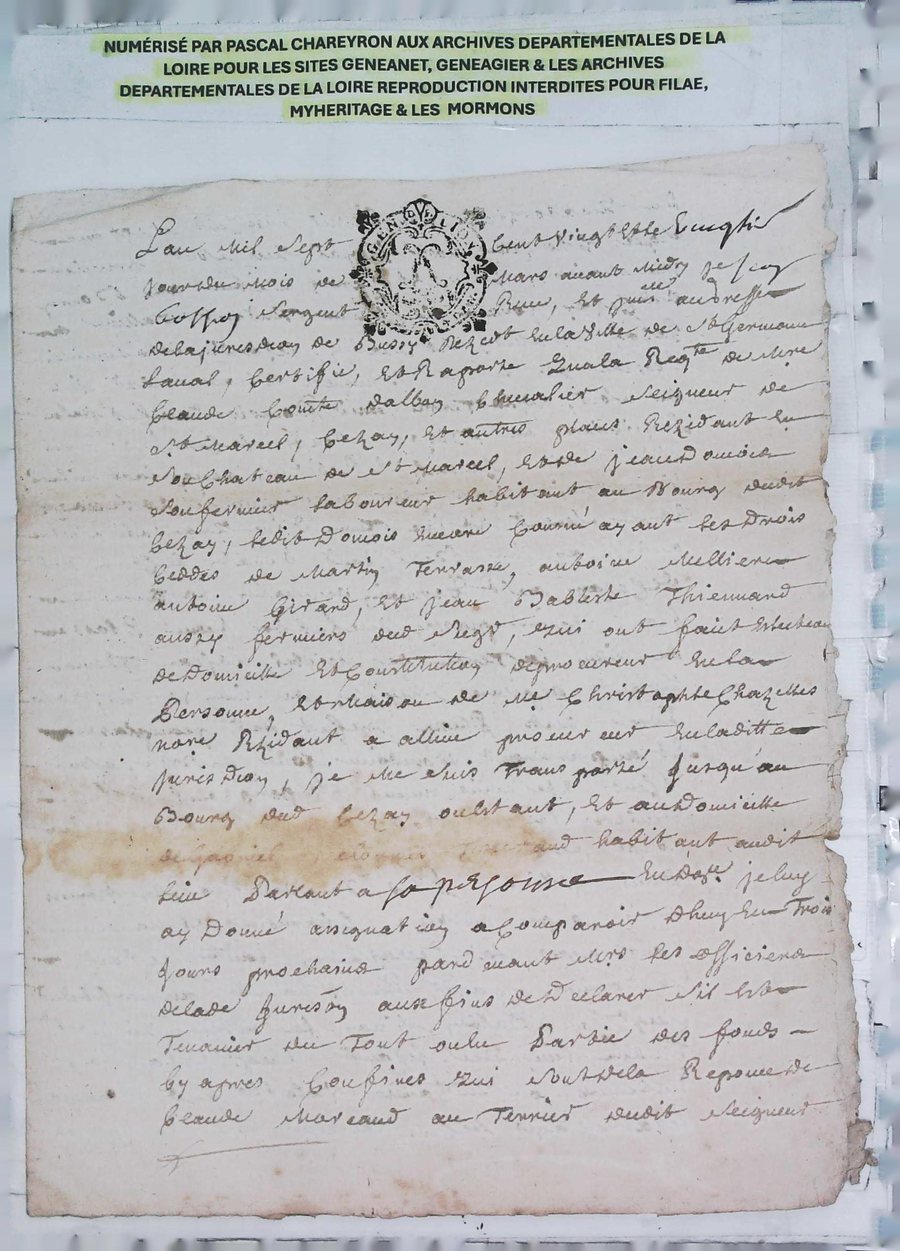 NUMÉRISÉ PAR PASCAL CHAREYRON AUX ARCHIVES DEPARTEMENTALES DE LA
LOIRE POUR LES SITES GENEANET, GENEAGIER & LES ARCHIVES
DEPARTEMENTALES DE LA LOIRE REPRODUCTION INTERDITES POUR FILAE,
MYHERITAGE & LES MORMONS
GEN DE LION
Lan Mil Sept Cent Vingt et le Vingtie
jour du Mois de Mars avant Midy je
Sergent
de la jurisdion de Bussy Rezidt en la Ville de St Germain
Laval, Certifie, et Raporte qu a la Reqte de Mire
Claude Comte dalbon Chevalier Seigneur de
St Marcel, Cezay, et autres places Rezidant en
son Chateau de St Marcel, et de jean Domois
son fermier Laboureur habitant au Bourg dudit
Cezay, ledit Domois encore Comme ayant les Drois
Ceddes de Martin Terrasse, antoine Mellier
antoine Girard, et jean Babtiste Thiennard
aussy fermiers dud Seigr, qui ont faict eslection
de Domicille et Constitution de procureur en la
Personne, et Maison de Me Christophle Chazelles
nore Rezidant a allieu procureur en laditte
Jurisdion, je me suis Transporté jusqu'au
Bourg dud Cezay oulstant, et au Domicille
de habitant audit
lieu Parlant a sa personne je luy
ay Donné assignation a Comparoir Dhuy en Trois
jours prochains pardevant Mrs les officiers
de lade Jurison aux fins de Declarer sil est
Tenancier du Tout ou en Partie des fonds
cy apres Confines qui sont de la Reponce de
Claude Marcaud au Terrier dudit Seigneur